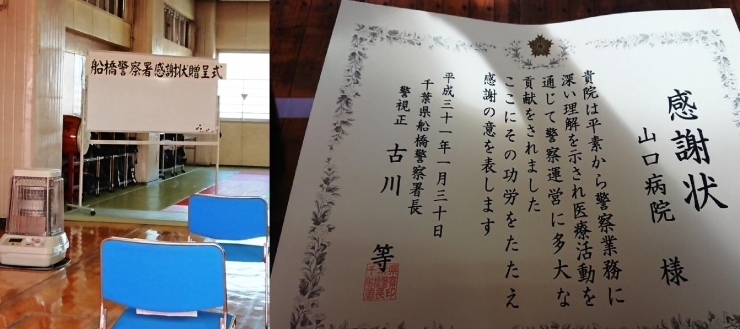 船橋警察署感謝状贈呈式
感謝状
山口病院 様
貴院は平素から警察業務に
深い理解を示され医療活動を
通じて警察運営に多大な
貢献をされました
ここにその功労をたたえ
感謝の意を表します
平成三十一年一月三十日
千葉県船橋警察署長
警視正 古川 等